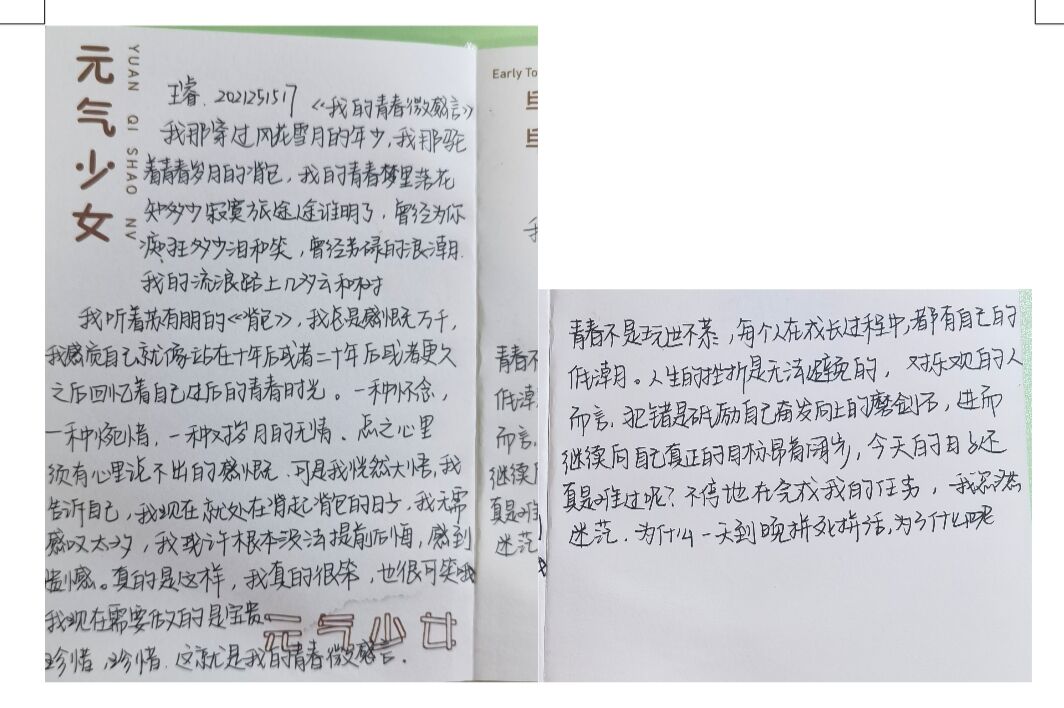 元气少女
YUAN QI SHAO NV
王睿. 2021251517 《我的青春微感言》
我那穿过风花雪月的年少,我那驼
着青春岁月的背包,我的青春梦里落花
知多少寂寞旅途途谁明了,曾经为你
疯狂多少泪和笑,曾经劳碌的浪潮.
我的流浪路上几多云和树
我听着苏有朋的《背包》,我总是感慨无万千,
我感觉自己就像站在十年后或者二十年后或者更久
之后回忆着自己过后的青春时光。一种怀念,
一种惋惜,一种对岁月的无情、点之心里
须有心里说不出的感慨.可是我恍然大悟,我
告诉自己,我现在就处在背起背包的日子,我无需
感叹太多,我或许根本没法提前后悔,感到
遗憾。真的是这样,我真的很笨,也很可笑哦
我现在需要做的是宝贵。
珍惜,珍惜.这就是我的青春微感言.
元气少女
Early To
青春不
低潮
而言,
继续
真是难
迷茫
青春不是玩世不恭,每个人在成长过程中,都有自己的
低潮月。人生的挫折是无法避免的,对乐观的人
而言,犯错是砥励自己奋发向上的磨剑石,进而
继续向自己真正的目标昂着阔步,今天的日子还
真是难过呢?不停地在完成我的任务,我忽然
迷茫.为什么一天到晚拼死拼活,为了什么呢